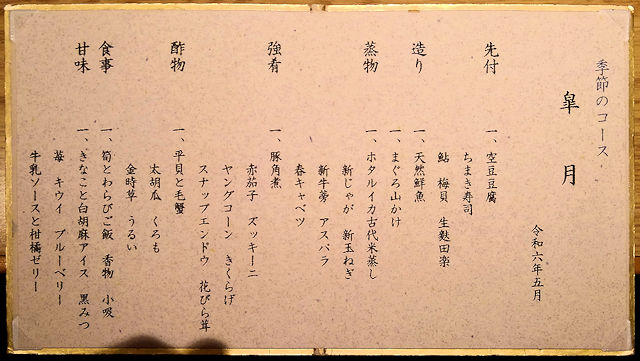 季節のコース
皐月
令和六年五月
先付 一、空豆豆腐
ちまき寿司
鮎 梅貝 生麩田楽
造り 一、天然鮮魚
一、まぐろ山かけ
蒸物 一、ホタルイカ古代米蒸し
新じゃが 新玉ねぎ
新牛蒡 アスパラ
春キャベツ
強肴 一、豚角煮
赤茄子 ズッキーニ
ヤングコーン きくらげ
スナップエンドウ 花びら茸
酢物 一、平貝と毛蟹
太胡瓜 くろも
金時草 うるい
食事 一、筍とわらびご飯 香物 小吸
甘味 一、きなこと白胡麻アイス 黒みつ
苺 キウイ ブルーベリー
牛乳ソースと柑橘ゼリー